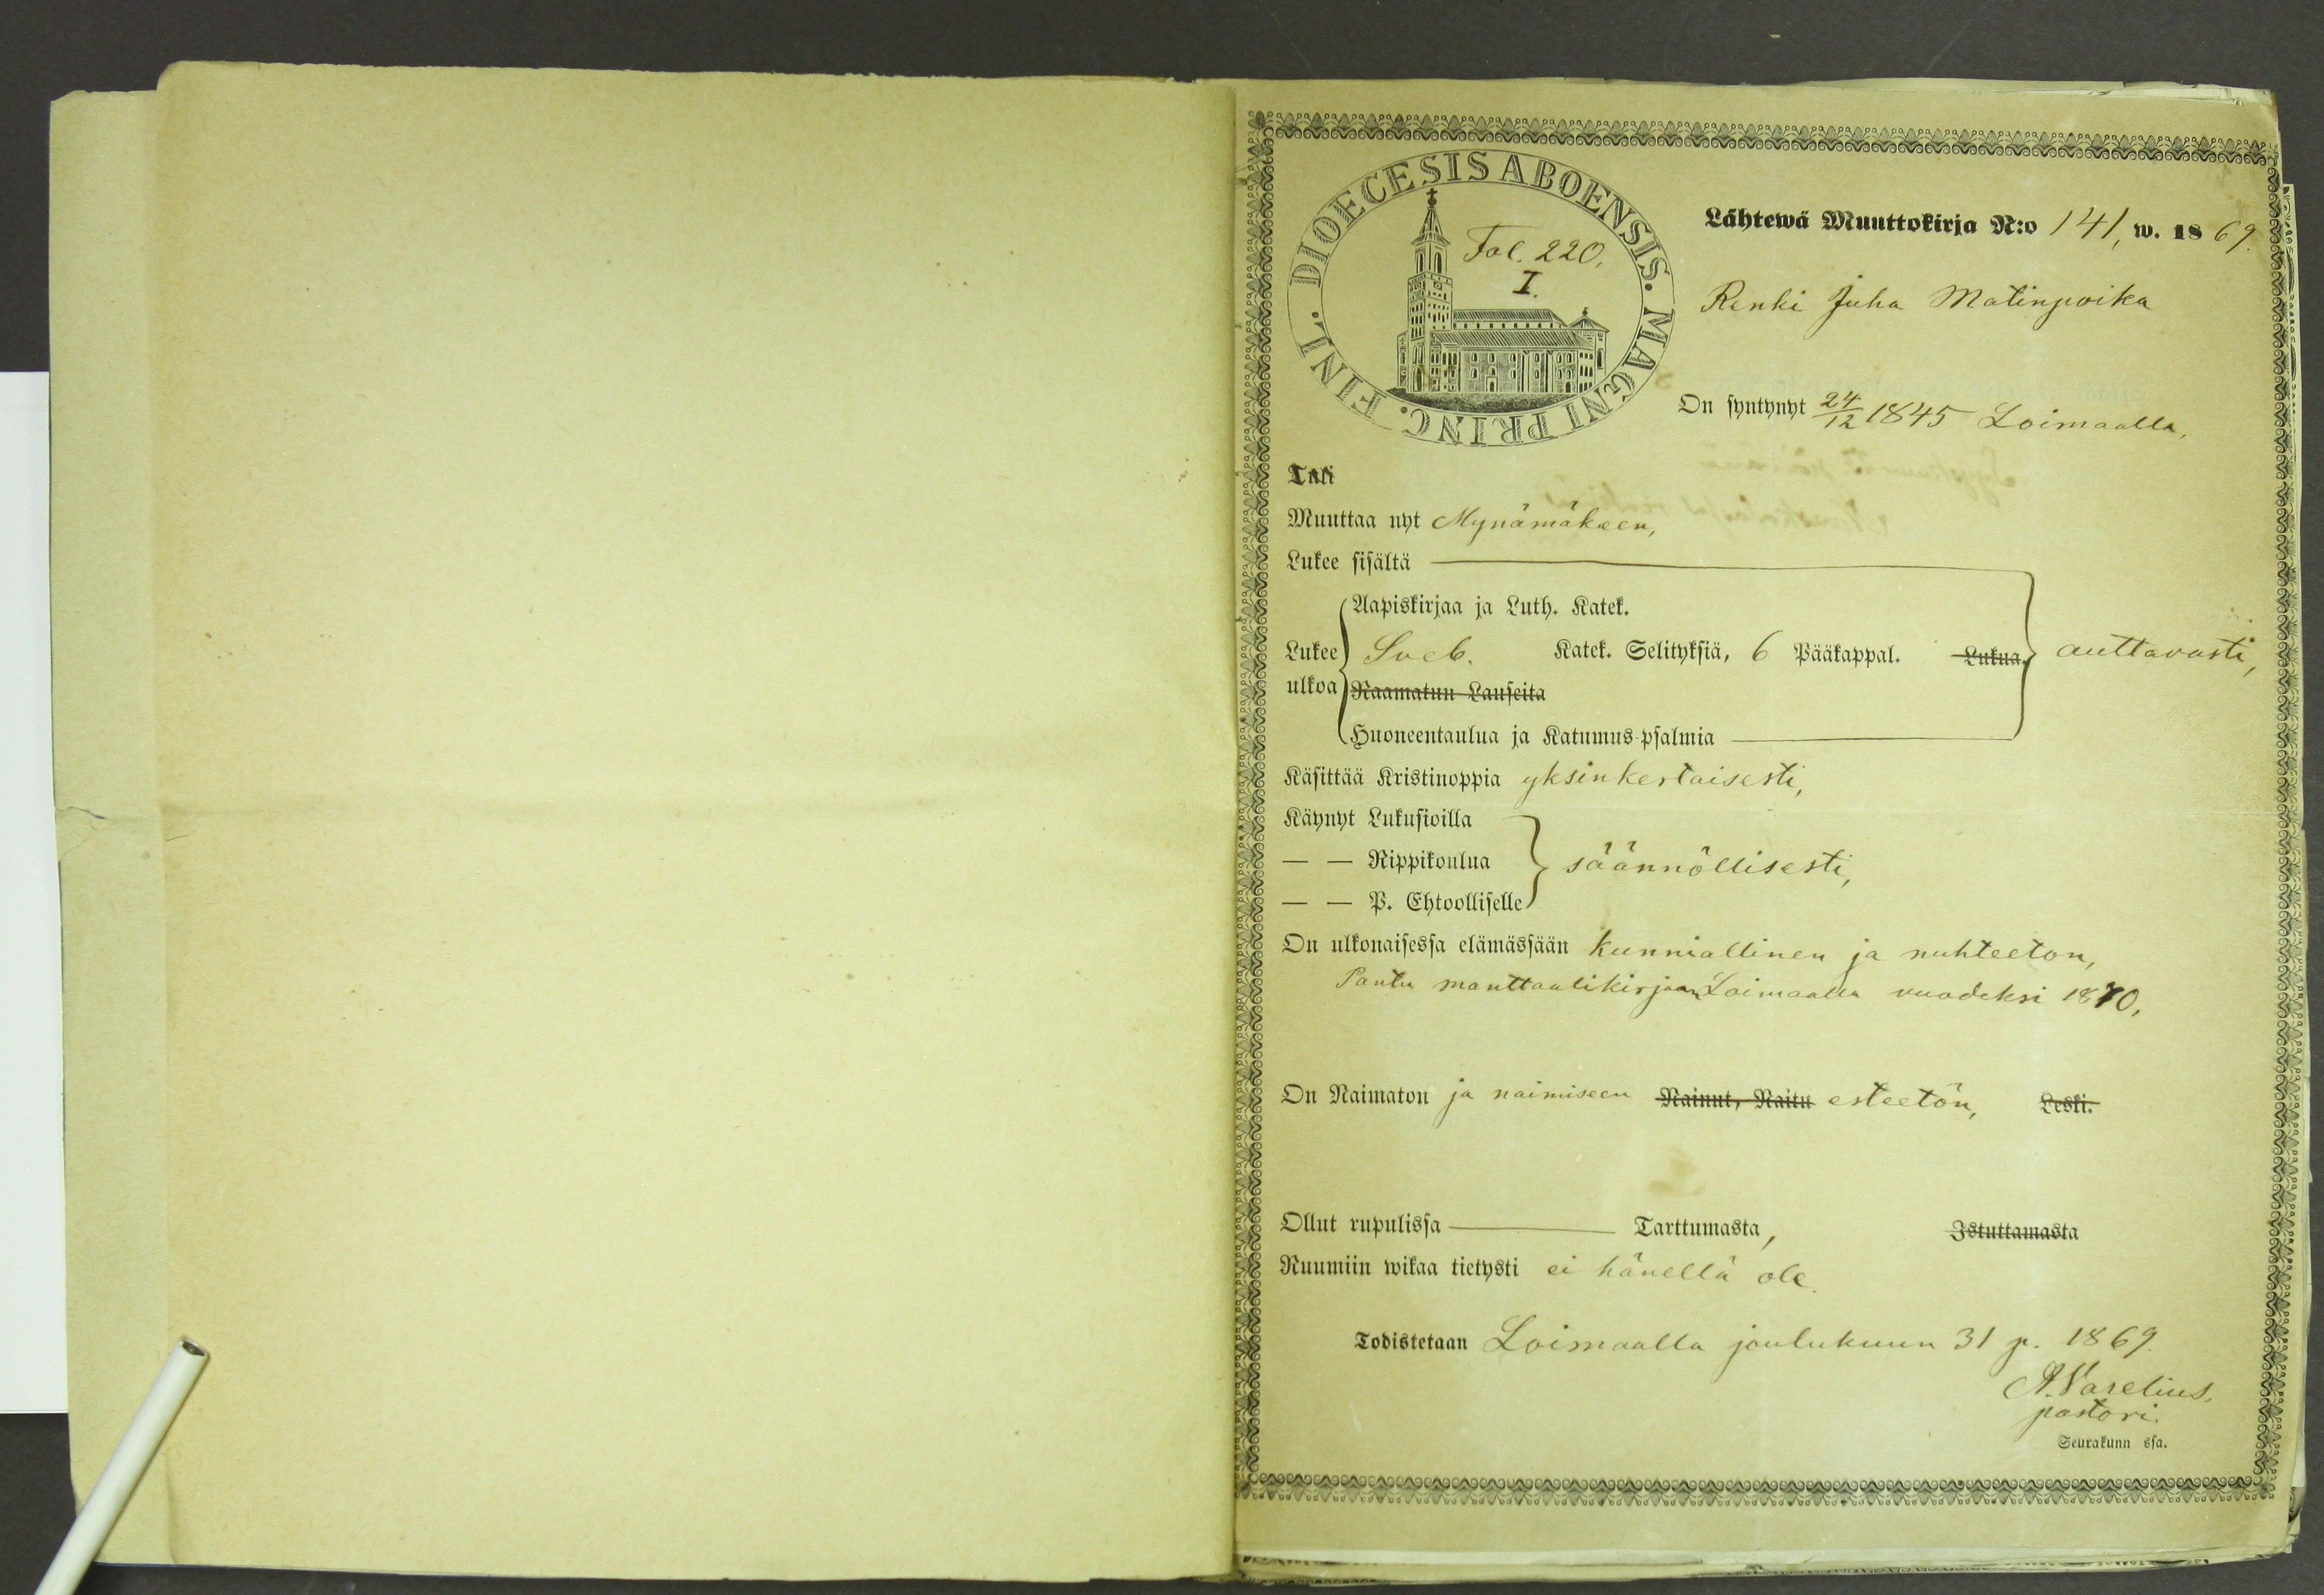 DIOECESIS ABOENSIS. MAGNI PRINC. FINL.
Fol. 220.
I.
Lähtewä Muuttokirja N:o 141, w. 1869.
Renki Juha Matinpoika
On syntynyt 24/12 1845 Loimaalla,
Tuli
Muuttaa nyt Mynämäkeen,
Lukee sisältä
Aapiskirjaa ja Luth. Katek.
Lukee Sveb. Katek. Selityksiä, 6 Pääkappal. Lukua. auttavasti,
ulkoa Raamatun Lauseita
Huoneentaulua ja Katumus-psalmia
Käsittää Kristinoppia yksinkertaisesti,
Käynyt Lukusioilla
— — Rippikoulua säännöllisesti,
— — P. Ehtoolliselle
On ulkonaisessa elämässään kunniallinen ja nuhteeton,
Pantu manttaalikirjaan Loimaalla vuodeksi 1870,
On Naimaton ja naimiseen Nainut, Naitu esteetön, Leski.
Ollut rupulissa Tarttumasta, Istuttamasta
Ruumiin wikaa tietysti ei hänellä ole.
Todistetaan Loimaalla joulukuun 31 p. 1869.
A. Varelius,
pastori.
Seurakunn ssa.